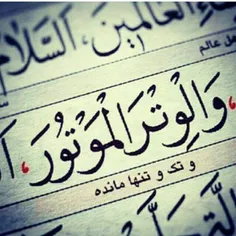 ـاءِ العالَمينَ، اَلسَّلامُ
ـل عالم
، وَالْوِتْرَ الْمَوْتُورَ، اَ
و تک و تنها مانده